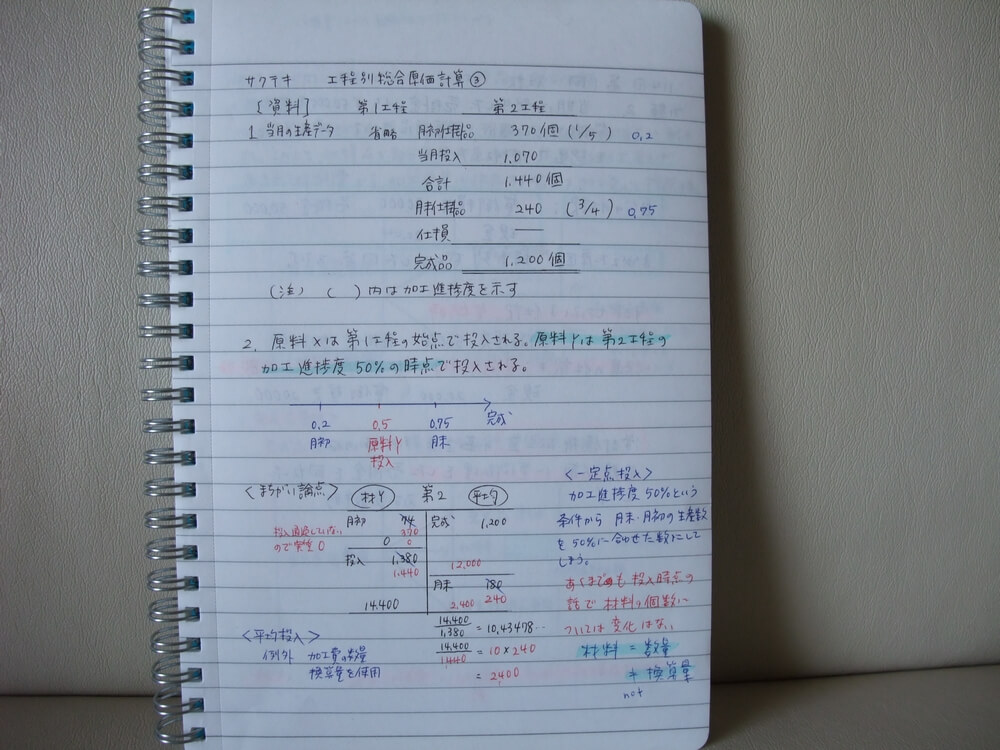 サクテキ 工程別総合原価計算③
[資料] 第1工程 第2工程
1. 当月の生産データ 省略 月初仕掛品 370個 (1/5) 0.2
当月投入 1,070
合計 1,440個
月末仕掛品 240 (3/4) 0.75
仕損 —
完成品 1,200個
(注) ( )内は加工進捗度を示す
2. 原料Xは第1工程の始点で投入される。原料Yは第2工程の
加工進捗度50%の時点で投入される。
0.2 0.5 0.75 完成
月初 原料Y 月末
投入
<まちがい論点> 材Y 第2 平均
月初 74 370 完成 1,200
投入通過していない
ので実質0
0 0
投入 1,380 12,000
1,440
月末 180 240
14,400 2,400
14,400/1,380 = 10,43478…
14,400/1440 = 10×240
= 2400
<平均投入>
例外 加工費の数量
換算量を使用
<一定点投入>
加工進捗度50%という
条件から 月末・月初の生産数
を50%に合わせた数にして
しまう。
あくまでも投入時点の
話で材料の個数に
ついては変化はない
材料=数量
≠換算量
not